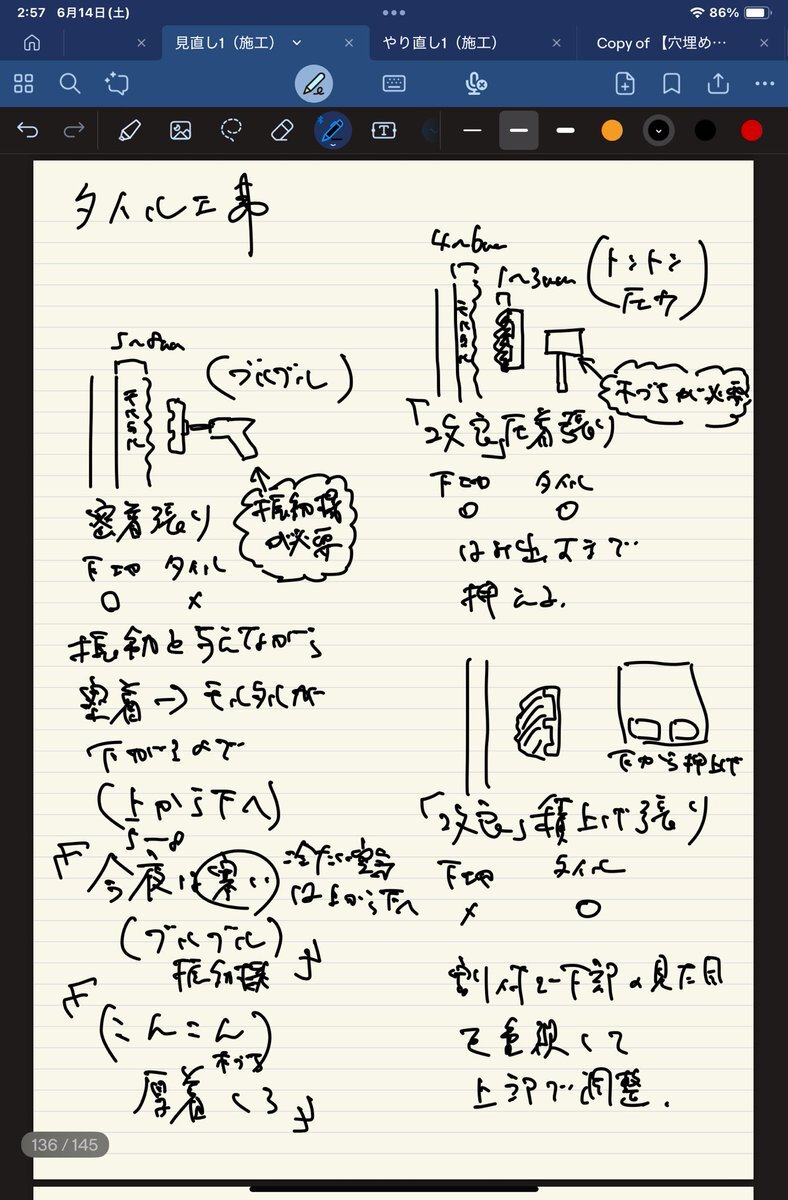 2:57 6月14日(土)
86%
見直し1（施工）
やり直し1（施工）
Copy of 【穴埋め…
タイル工事
5~8mm
モルタル
(ブルブル)
振動機
が必要
密着張り
下地 タイル
○ ×
振動を与えながら
密着→モルタルが
下がるまで
(上から下へ)
5~8
『今夜は寒い
冷たい空気
は上から下へ
(ブルブル)
振動機』
『(こんこん)
木づち
厚着しろ』
4~6mm
1~3mm
モルタル
(トントン
圧力)
木づちが必要
「改良」圧着張り
下地 タイル
○ ○
はみ出すまで
押える.
下から押上げ
「改良」積上げ張り
下地 タイル
× ○
割付を下部の見た目
を重視して
上部で調整.
136 / 145